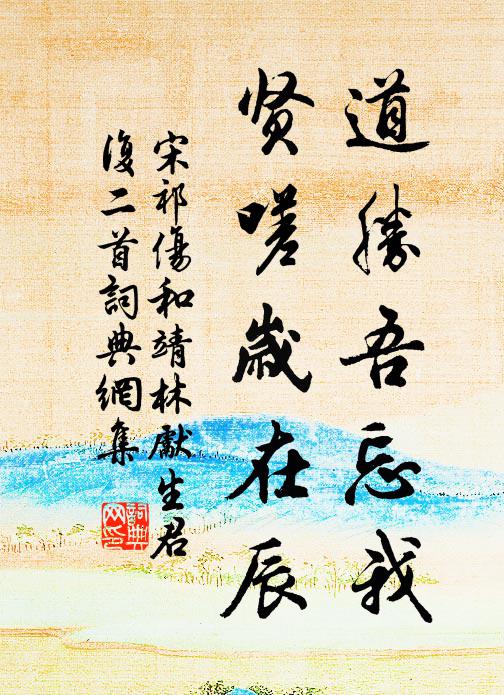 道勝吾忘我
贤嗟歲在辰
宋祁傷和靖林獻生君
復二首詞典網集